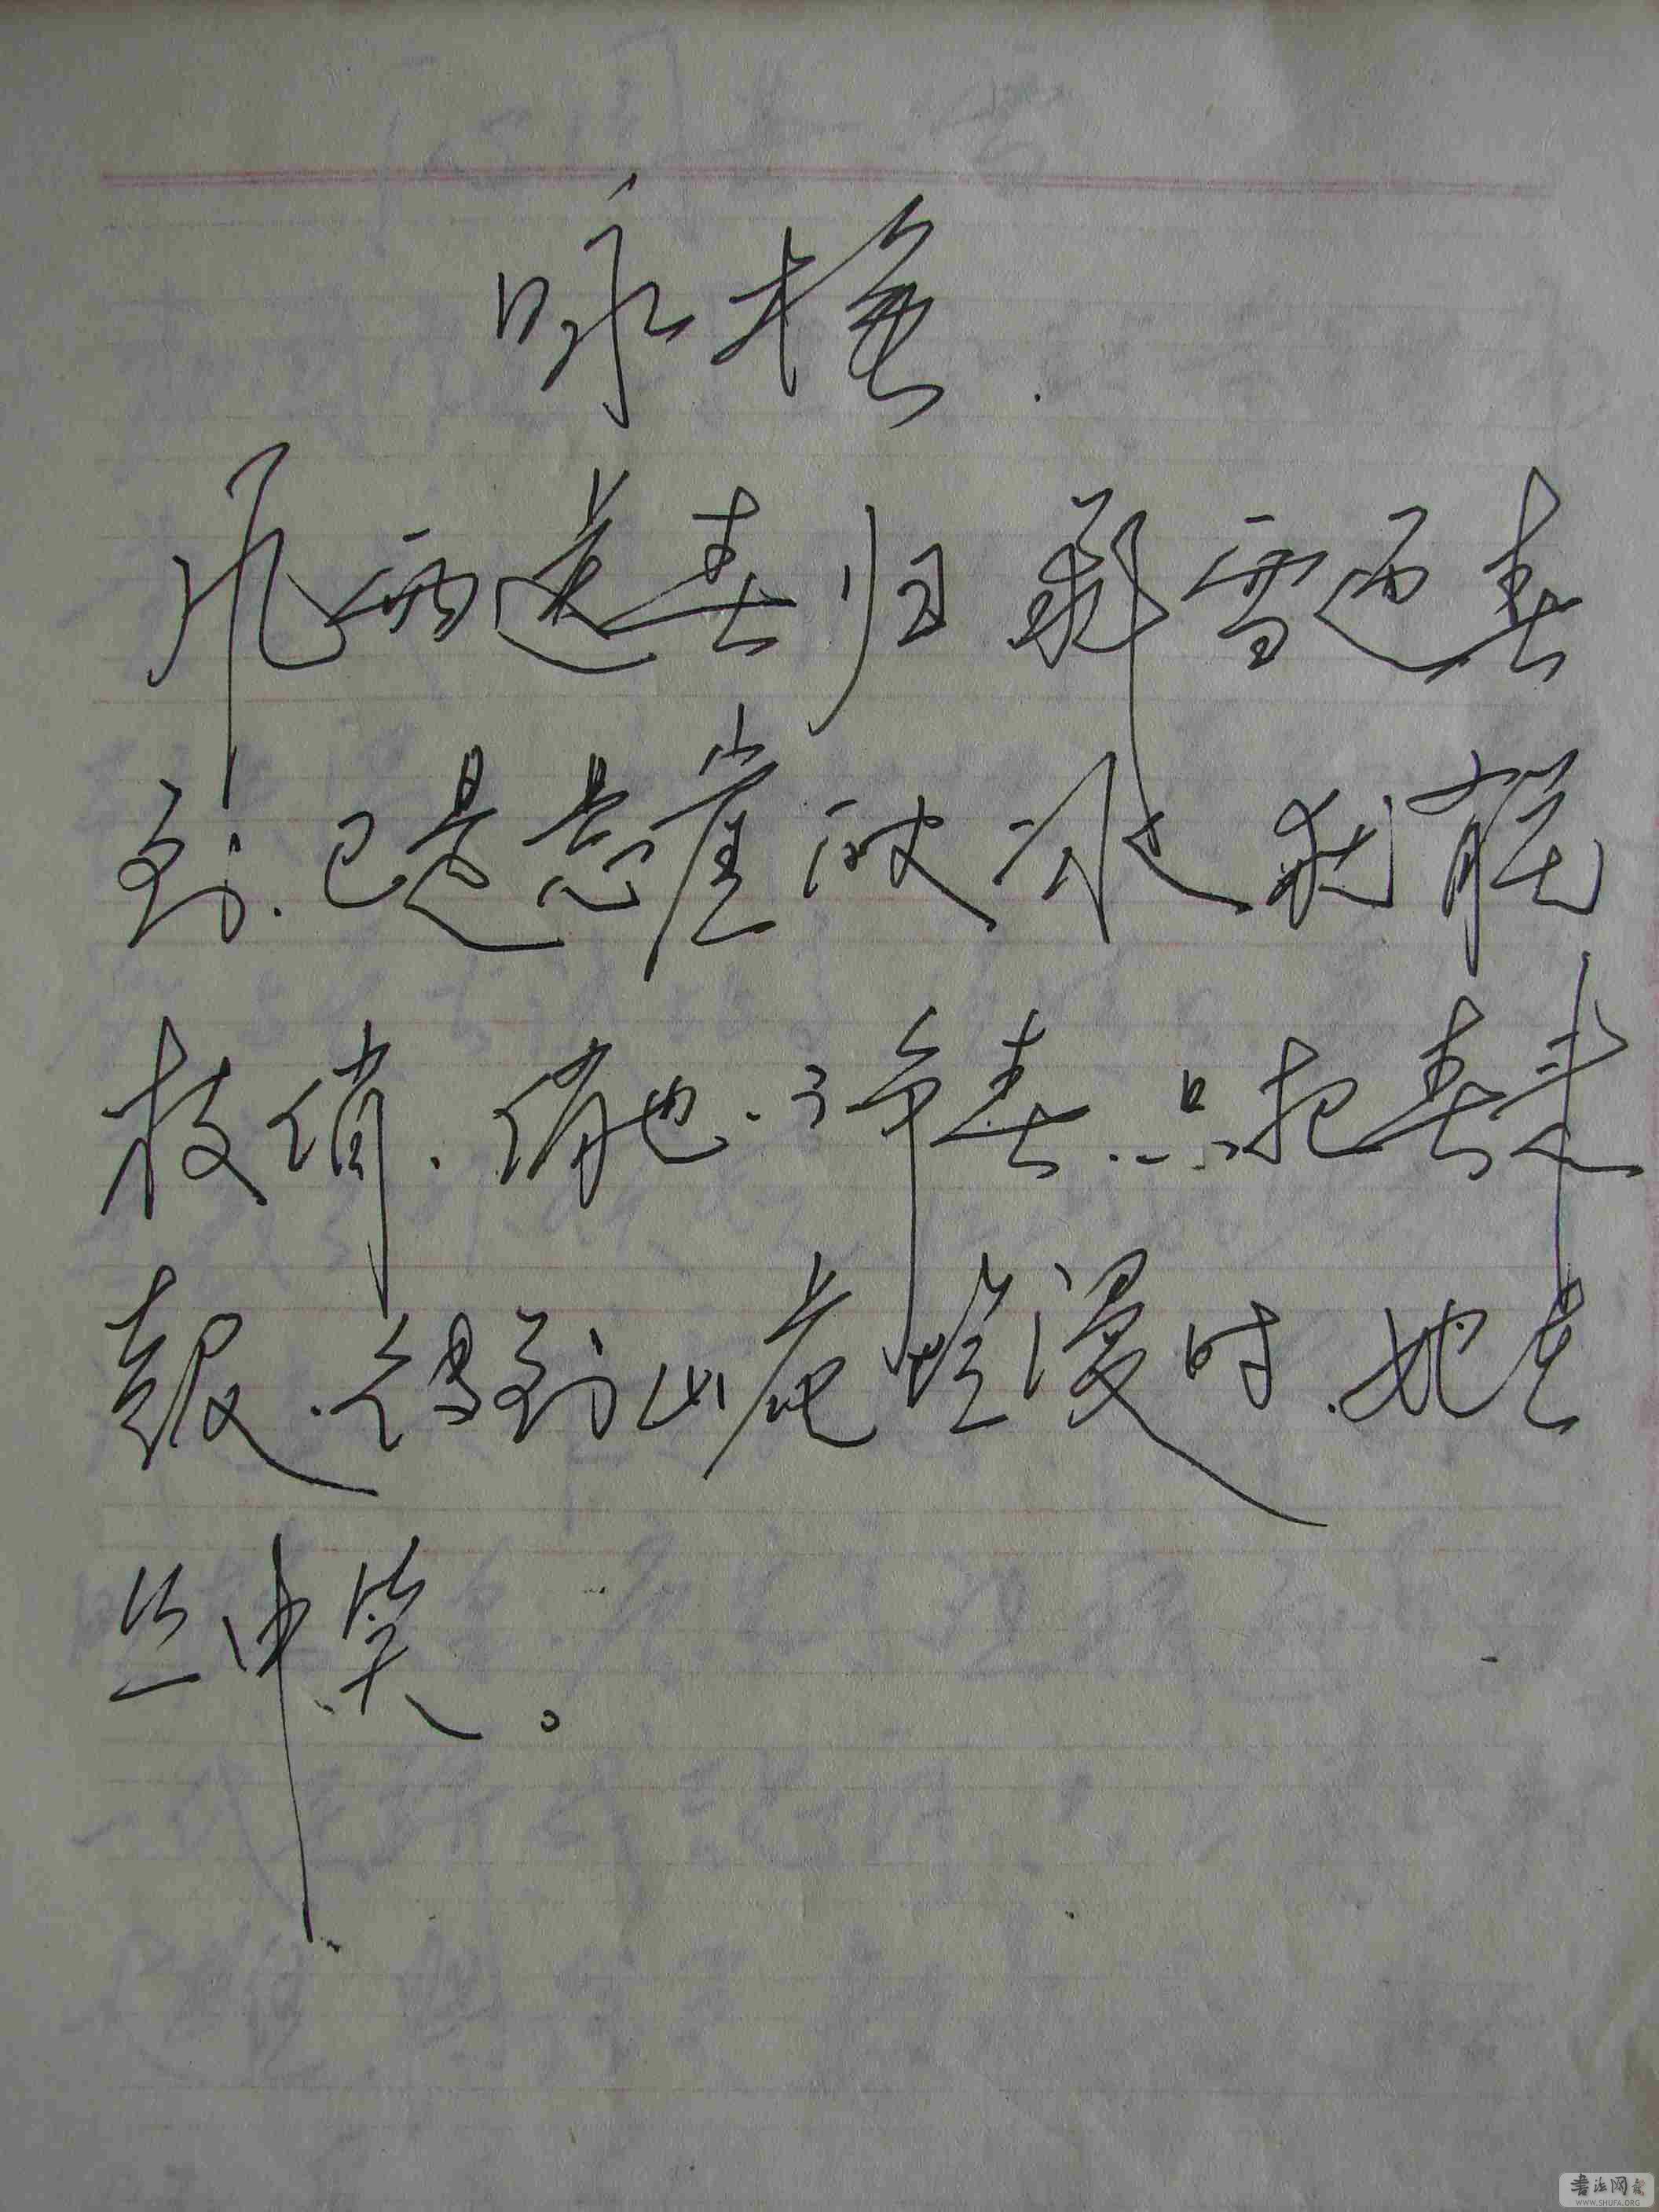 咏梅.
风雨送春归 飞雪迎春
到.已是悬崖百丈冰 犹有花
枝俏.俏也.不争春.只把春来
报.待到山花烂漫时.她在
丛中笑。
书法网
WWW.SHUFA.ORG